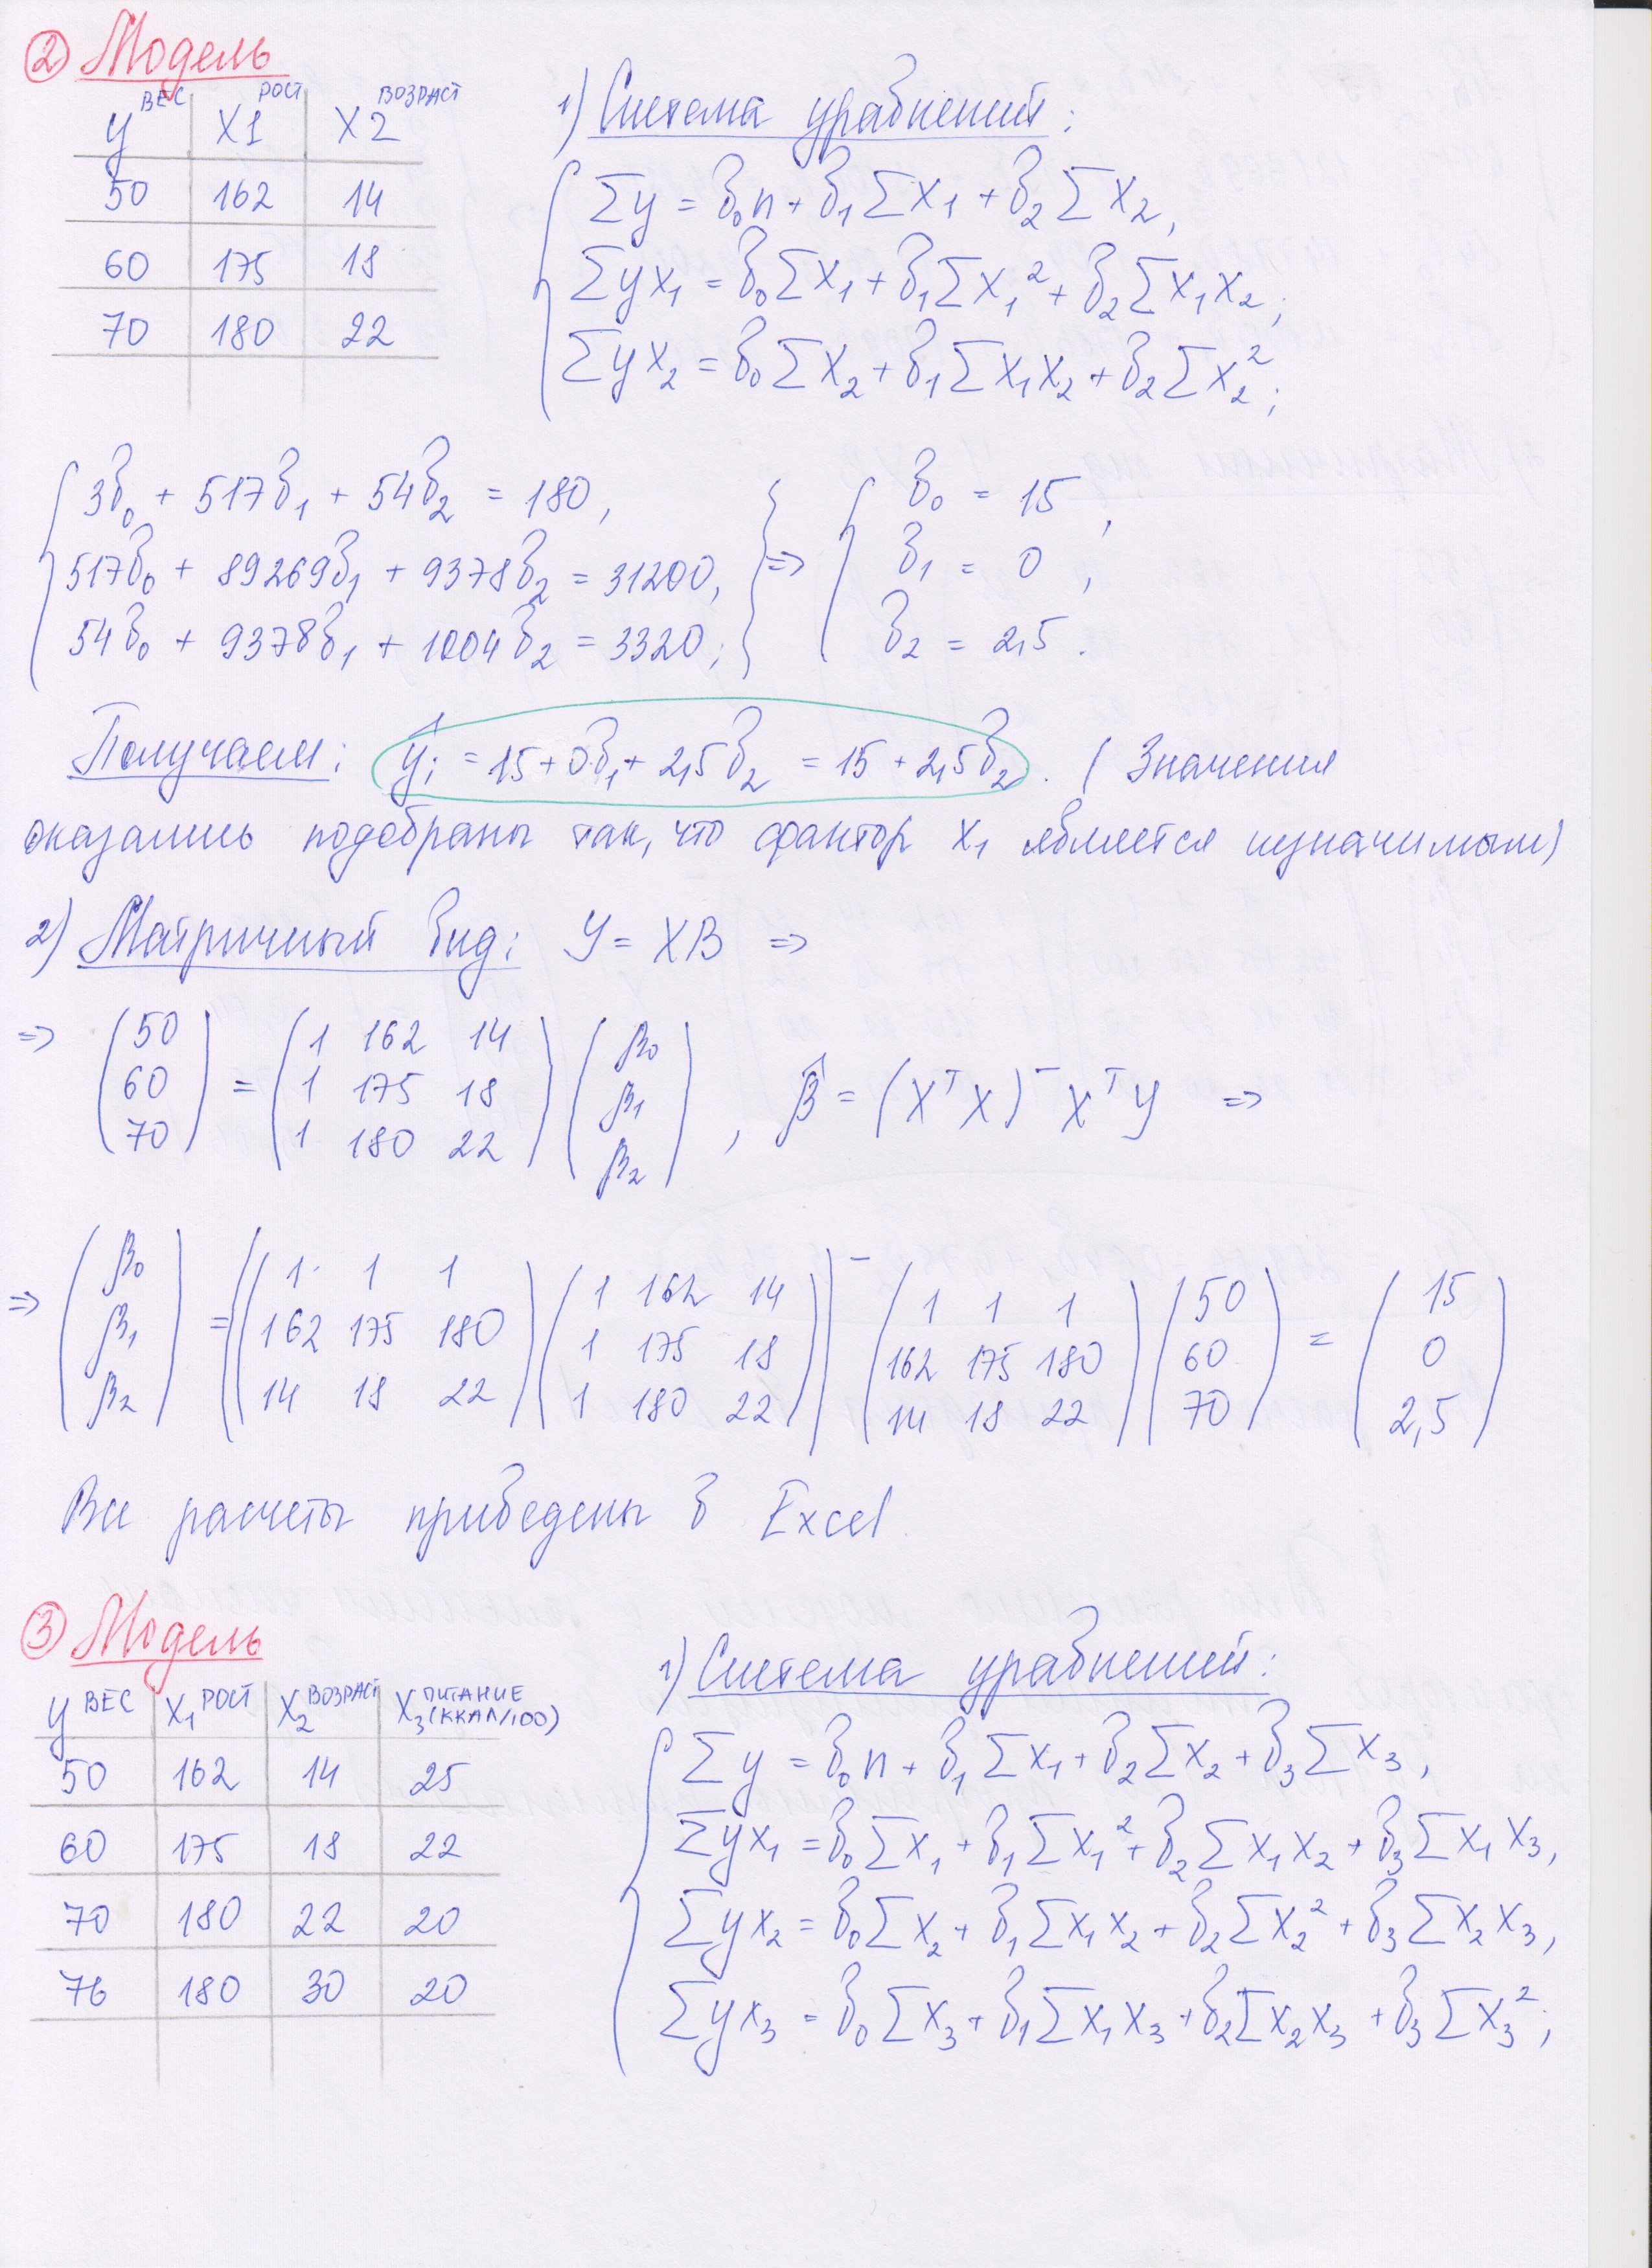 ② Модель
y ВЕС X1 РОСТ X2 ВОЗРАСТ
50 162 14
60 175 18
70 180 22
1) Система уравнений:
Σy = b₀n + b₁Σx₁ + b₂Σx₂,
Σyx₁ = b₀Σx₁ + b₁Σx₁² + b₂Σx₁x₂;
Σyx₂ = b₀Σx₂ + b₁Σx₁x₂ + b₂Σx₂²;
3b₀ + 517b₁ + 54b₂ = 180, b₀ = 15,
517b₀ + 89269b₁ + 9378b₂ = 31200, => b₁ = 0,
54b₀ + 9378b₁ + 1004b₂ = 3320; b₂ = 2,5.
Получаем: ŷᵢ = 15 + 0b₁ + 2,5b₂ = 15 + 2,5b₂. (Значения
оказались подобраны так, что фактор x₁ является незначимым)
2) Матричный вид: Y = XB =>
=> (50 60 70) = (1 162 14 1 175 18 1 180 22) (β₀ β₁ β₂), β̂ = (XᵀX)⁻XᵀY =>
=> (β₀ β₁ β₂) = ((1 1 1 162 175 180 14 18 22) (1 162 14 1 175 18 1 180 22))⁻ (1 1 1 162 175 180 14 18 22) (50 60 70) = (15 0 2,5)
Все расчеты приведены в Excel.
③ Модель
y ВЕС X₁ РОСТ X₂ ВОЗРАСТ X₃ ПИТАНИЕ (ККАЛ/100)
50 162 14 25
60 175 18 22
70 180 22 20
76 180 30 20
1) Система уравнений:
Σy = b₀n + b₁Σx₁ + b₂Σx₂ + b₃Σx₃,
Σyx₁ = b₀Σx₁ + b₁Σx₁² + b₂Σx₁x₂ + b₃Σx₁x₃,
Σyx₂ = b₀Σx₂ + b₁Σx₁x₂ + b₂Σx₂² + b₃Σx₂x₃,
Σyx₃ = b₀Σx₃ + b₁Σx₁x₃ + b₂Σx₂x₃ + b₃Σx₃²;